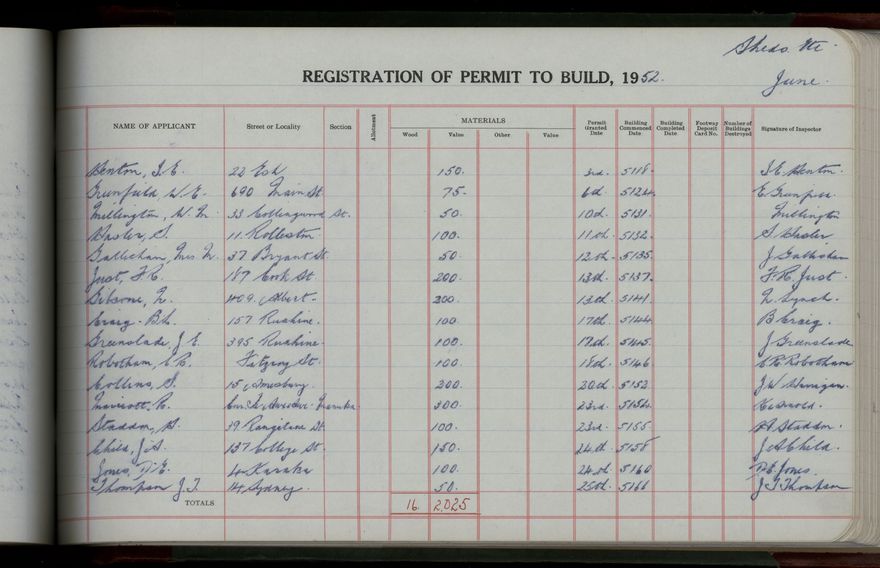 Sheds etc.
REGISTRATION OF PERMIT TO BUILD, 1952.
June.
NAME OF APPLICANT Street or Locality Section Allotment MATERIALS Permit Granted Date Building Commenced Date Building Completed Date Footway Deposit Card No. Number of Buildings Destroyed Signature of Inspector
Wood Value Other Value
22 Esk 150. 3rd. 5118.
690 Main St. 75. 6th. 5124.
Millington, W. M. 33 Collingwood St. 50. 10th. 5131. Millington
Hasler, S. 11. Rolleston 100. 11th. 5132. S. Hasler
Gallichan, Mrs. M. 37 Bryant St. 50. 12th. 5135. J. Gallichan
Just, F. R. 187 Cook St. 200. 13th. 5137. F. R. Just.
409. Albert. 200. 13th. 5141. Lynch.
Craig. B. 157 Ruahine. 100. 17th. 5144. B Craig.
Greenslade, J. E. 395 Ruahine. 100. 17th. 5145. J Greenslade
Robotham, C. R. Fitzroy St. 100. 18th. 5146. C. R. Robotham
Collins, S. 15 Amesbury. 200. 20th. 5152 J. W.
300. 23rd. 5154.
Staddon, 39 Rangitane St. 100. 23rd. 5155 Staddon.
Child, J. A. 137 College St. 150. 24th. 5158 J A Child.
Jones, D. E. 4 Karaka 100. 24th. 5160 D. E. Jones.
Thompson J. T. 14 Sydney. 50. 25th. 5166 J T Thompson
TOTALS 16. 2,025